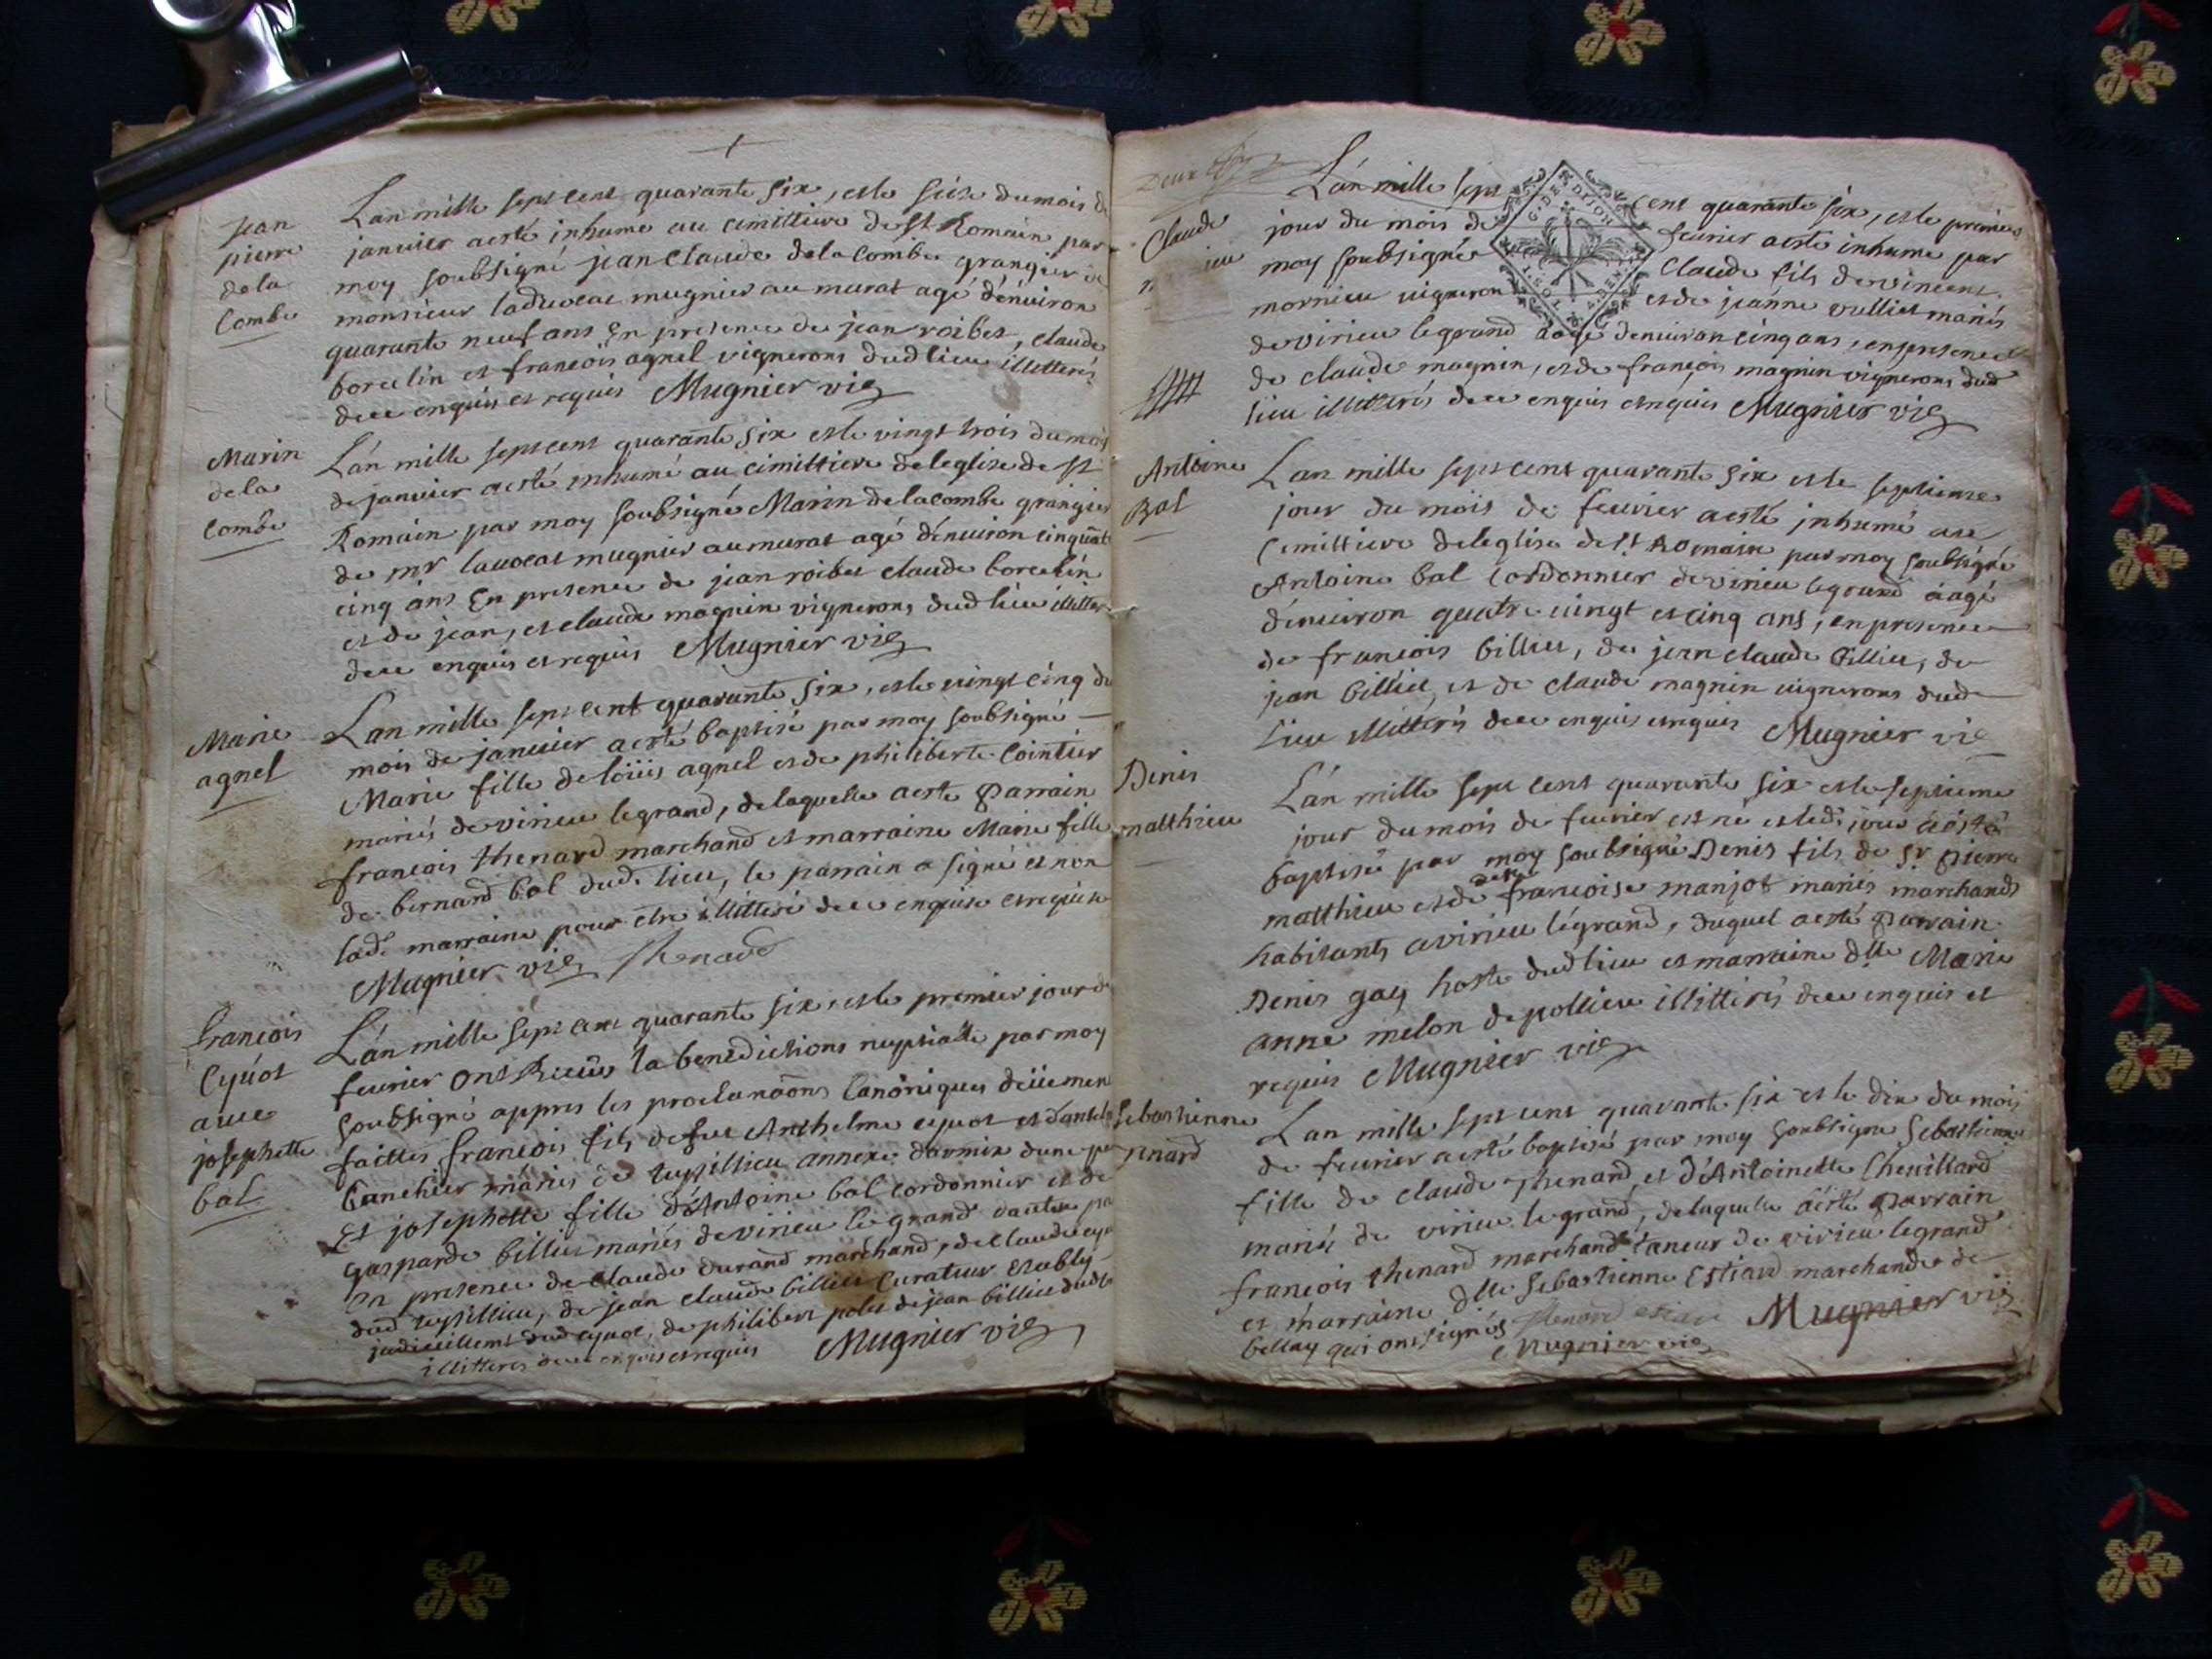 Jean
pierre
dela
Combe
L'an mille sept cent quarante six, et le seize du mois de
janvier a esté inhumé au cimittiere de st Romain par
moy soubsigné jean Claude dela Combe grangier de
monsieur ladvocat mugnier au murat agé d'enuiron
quarante neuf ans En presence de jean roibet, claude
borcelin et francois agnel vignerons dud lieu illitterés
de ce enquis et requis Mugnier vic
Marin
dela
Combe
L'an mille sept cent quarante six et le vingt trois du mois
de janvier a esté inhumé au cimittiere de leglise de st
Romain par moy soubsigné Marin delacombe grangier
de mr lavocat mugnier au murat agé d'enuiron cinquāte
cinq ans En presence de jean roibet claude borcelin
et de jean, et claude magnin vignerons dud lieu illitter
de ce enquis et requis Mugnier vic
Marie
agnel
L'an mille sept cent quarante six, et le vingt cinq du
mois de janvier a esté baptisé par moy soubsigné
Marie fille de loüis agnel et de philiberte Cointier
mariés de virieu legrand, de laquelle a esté Parrain
francois thenard marchand et marraine Marie fille
de bernard bal dud. lieu, le parrain a signé et non
lad. marraine pour etre illitteré de ce enquise et requise
Mugnier vic thenard
francois
Cyuot
avec
josephette
bal
L'an mille sept cent quarante six, et le premier jour de
feurier ont Receüs la benedictions nuptialle par moy
soubsigné appres les proclamāons Canoniques deüemen
faittes francois fils de fut Anthelme cyuot et
banchier mariés de ceyssillieu annexe d'avmix dune pa
Et josephette fille d'Antoine bal cordonnier et de
gasparde billiet mariés de virieu le grand dautre pa
En presence de Claude durand marchand, de Claude cyu
dud ceyssillieu, de jean claude billiet Curateur estably
judiciellement dud cyuot, de philibert polet de jean billiet dud
illitteres de ce enquis et requis Mugnier vic
Deux
Claude
L'an mille sept cent quarante six, et le premier
jour du mois de feurier a esté inhumé par
moy soubsigné Claude fils de vincent
mornieu vigneron et de jeanne vulliet mariés
de virieu legrand aagé denuiron cinq ans, en presence
de claude magnin, et de françois magnin vignerons dud
lieu illitterés de ce enquis et requis Mugnier vic
Antoine
Bal
L'an mille sept cent quarante six et le septieme
jour du mois de feurier a esté inhumé au
Cemittiere de leglise de st Romain par moy soubsigné
Antoine bal Cordonnier de virieu legrand aagé
d'enuiron quatre vingt et cinq ans, en presence
de francois billiet, de jean claude billiet, de
jean billiet et de claude magnin vignerons dud
lieu illitterés de ce enquis et requis Mugnier vic
Denis
matthieu
L'an mille sept cent quarante six et le septieme
jour du mois de feurier est né et led. jour a esté
baptisé par moy soubsigné Denis fils de Sr pierre
matthieu et de delle francoise manjot mariés marchands
habitants a virieu legrand, duquel a esté Parrain
Denis gay hoste dud lieu et marraine dlle Marie
anne melon de pollieu illitterés de ce enquis et
requis Mugnier vic
Sebastienne
thenard
L'an mille sept cent quarante six et le dix du mois
de feurier a esté baptisé par moy soubsigné Sebastienne
fille de claude thenard, et d'Antoinette Cheuillard
mariés de virieu le grand, de laquelle a esté Parrain
francois thenard marchand taneur de virieu legrand
et marraine dlle Sebastienne Estiard marchande de
bellay qui ont signés thenard Mugnier vic
Mugnier vic